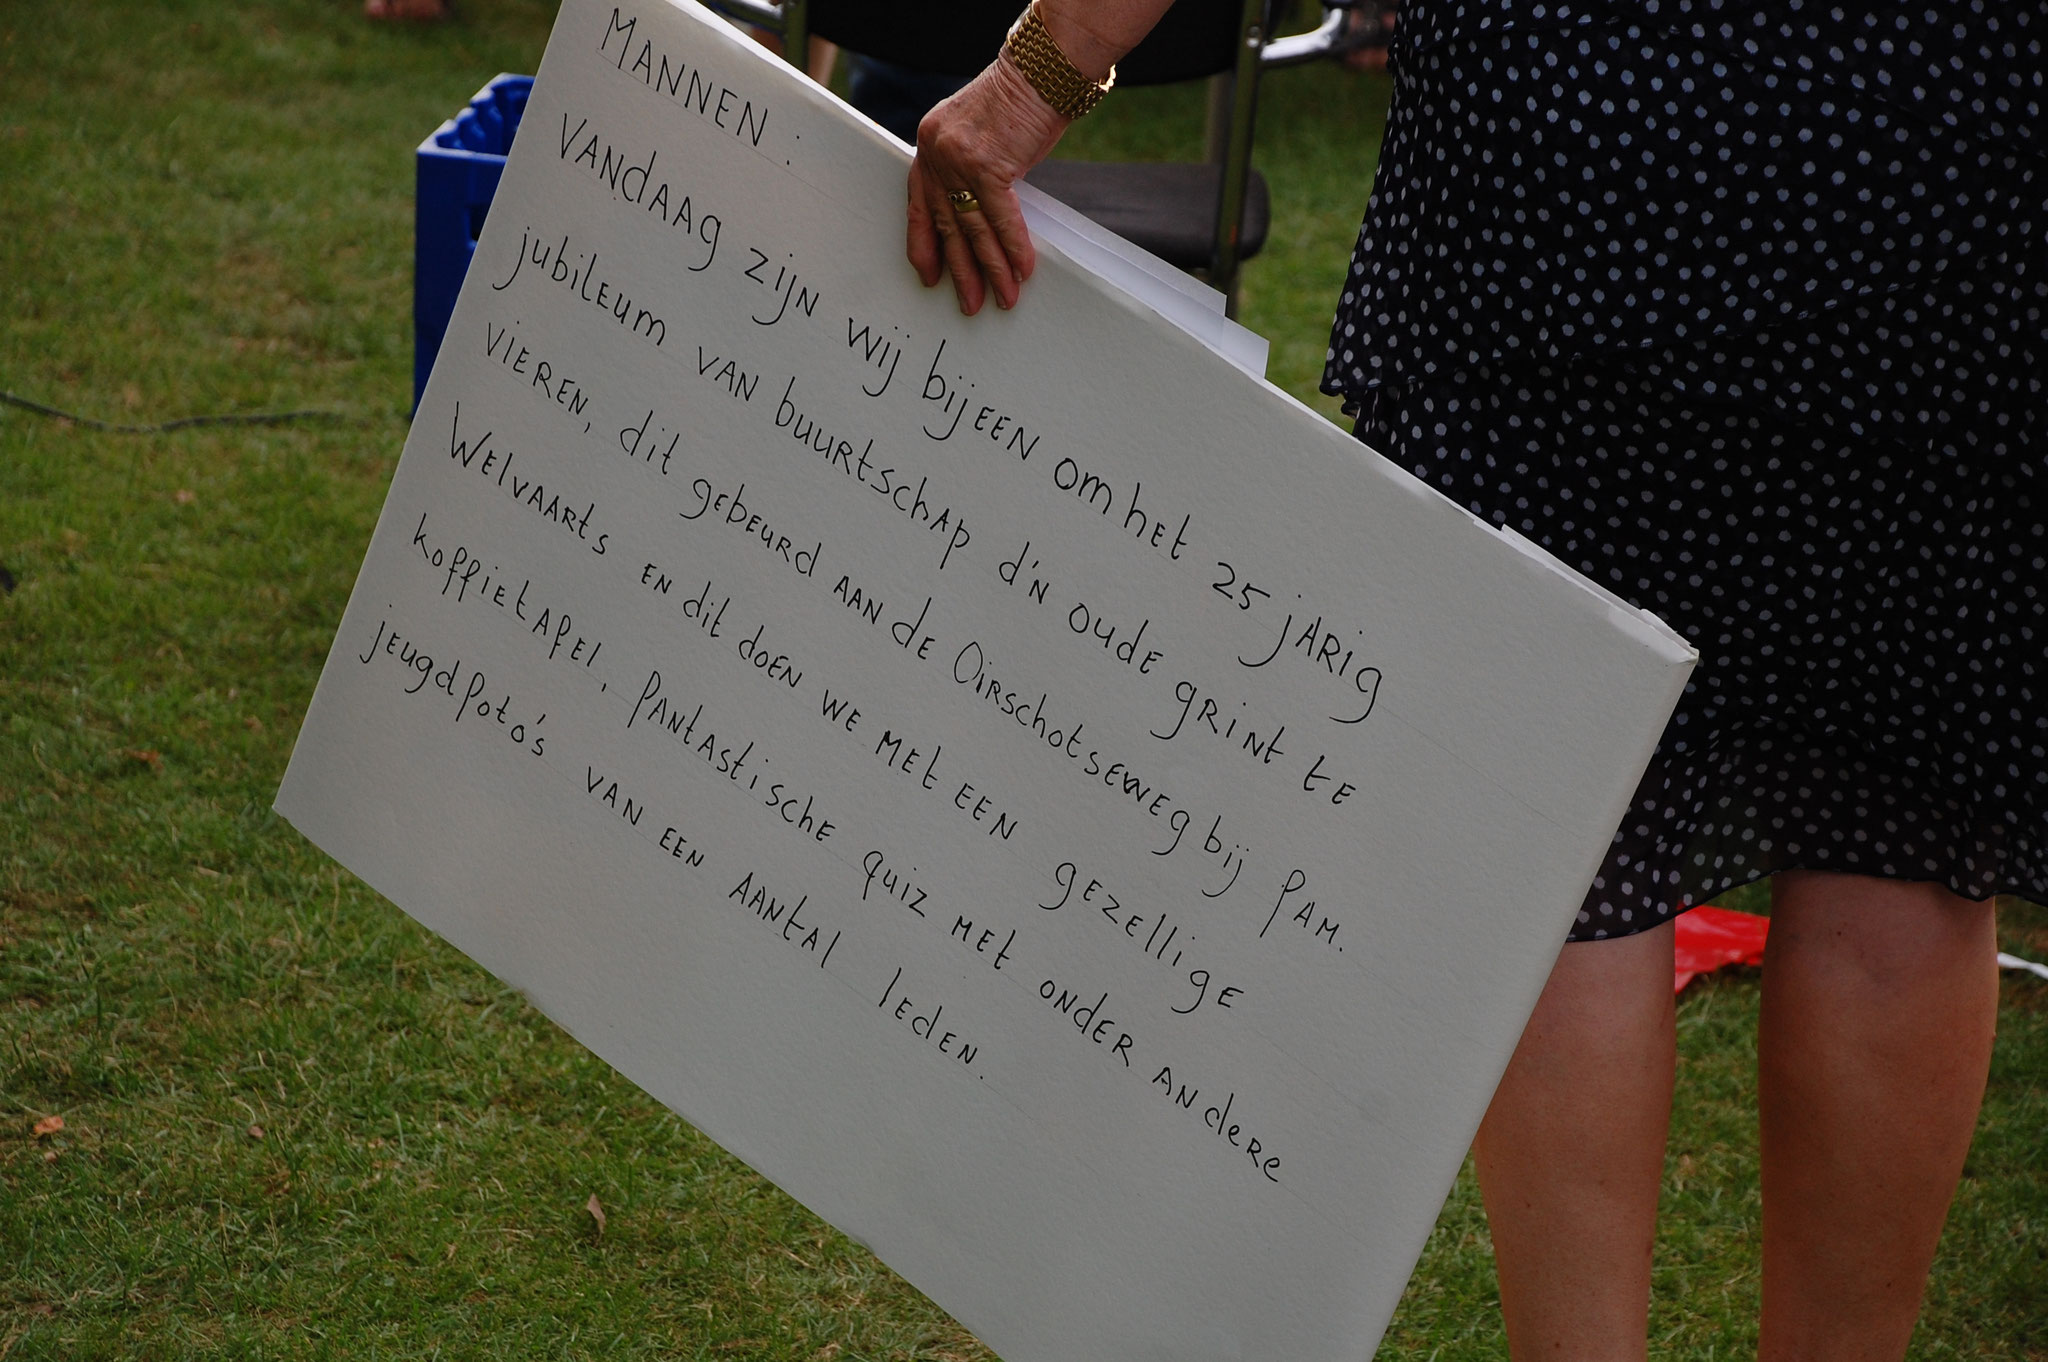 MANNEN:
VANdAAg zijN wij bijEEN om het 25 jARig
jubilEum VAN buuRtschAp d'N oudE gRiNt tE
ViEREN, dit gEbEuRd AAN dE OiRschotsEwEg bij fAM.
WElVAARts EN dit doEN WE MEt EEN gEzElligE
koffiEtAfEl, fANtAstischE quiz MEt oNdER ANdeRe
jEugdfoto's VAN EEN AANtAl lEdEN.